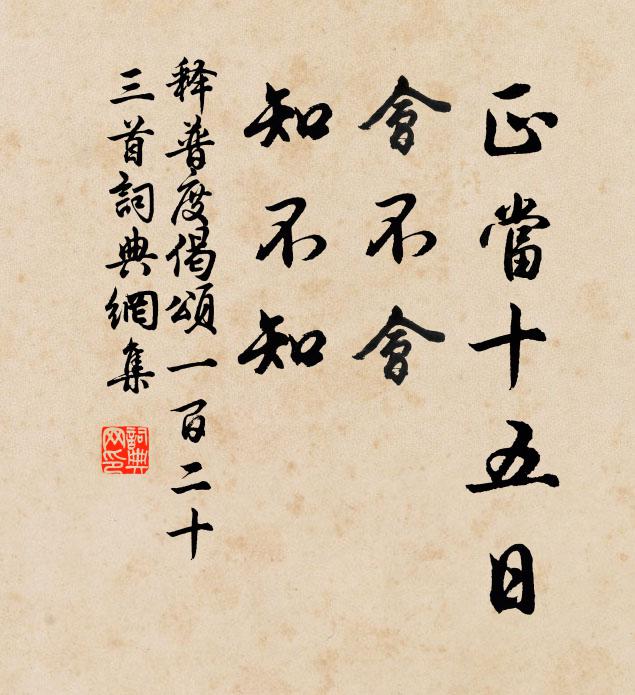 正當十五日
會不會
知不知
释普度偈頌一百二十
三首詞典網集
詞典
网印